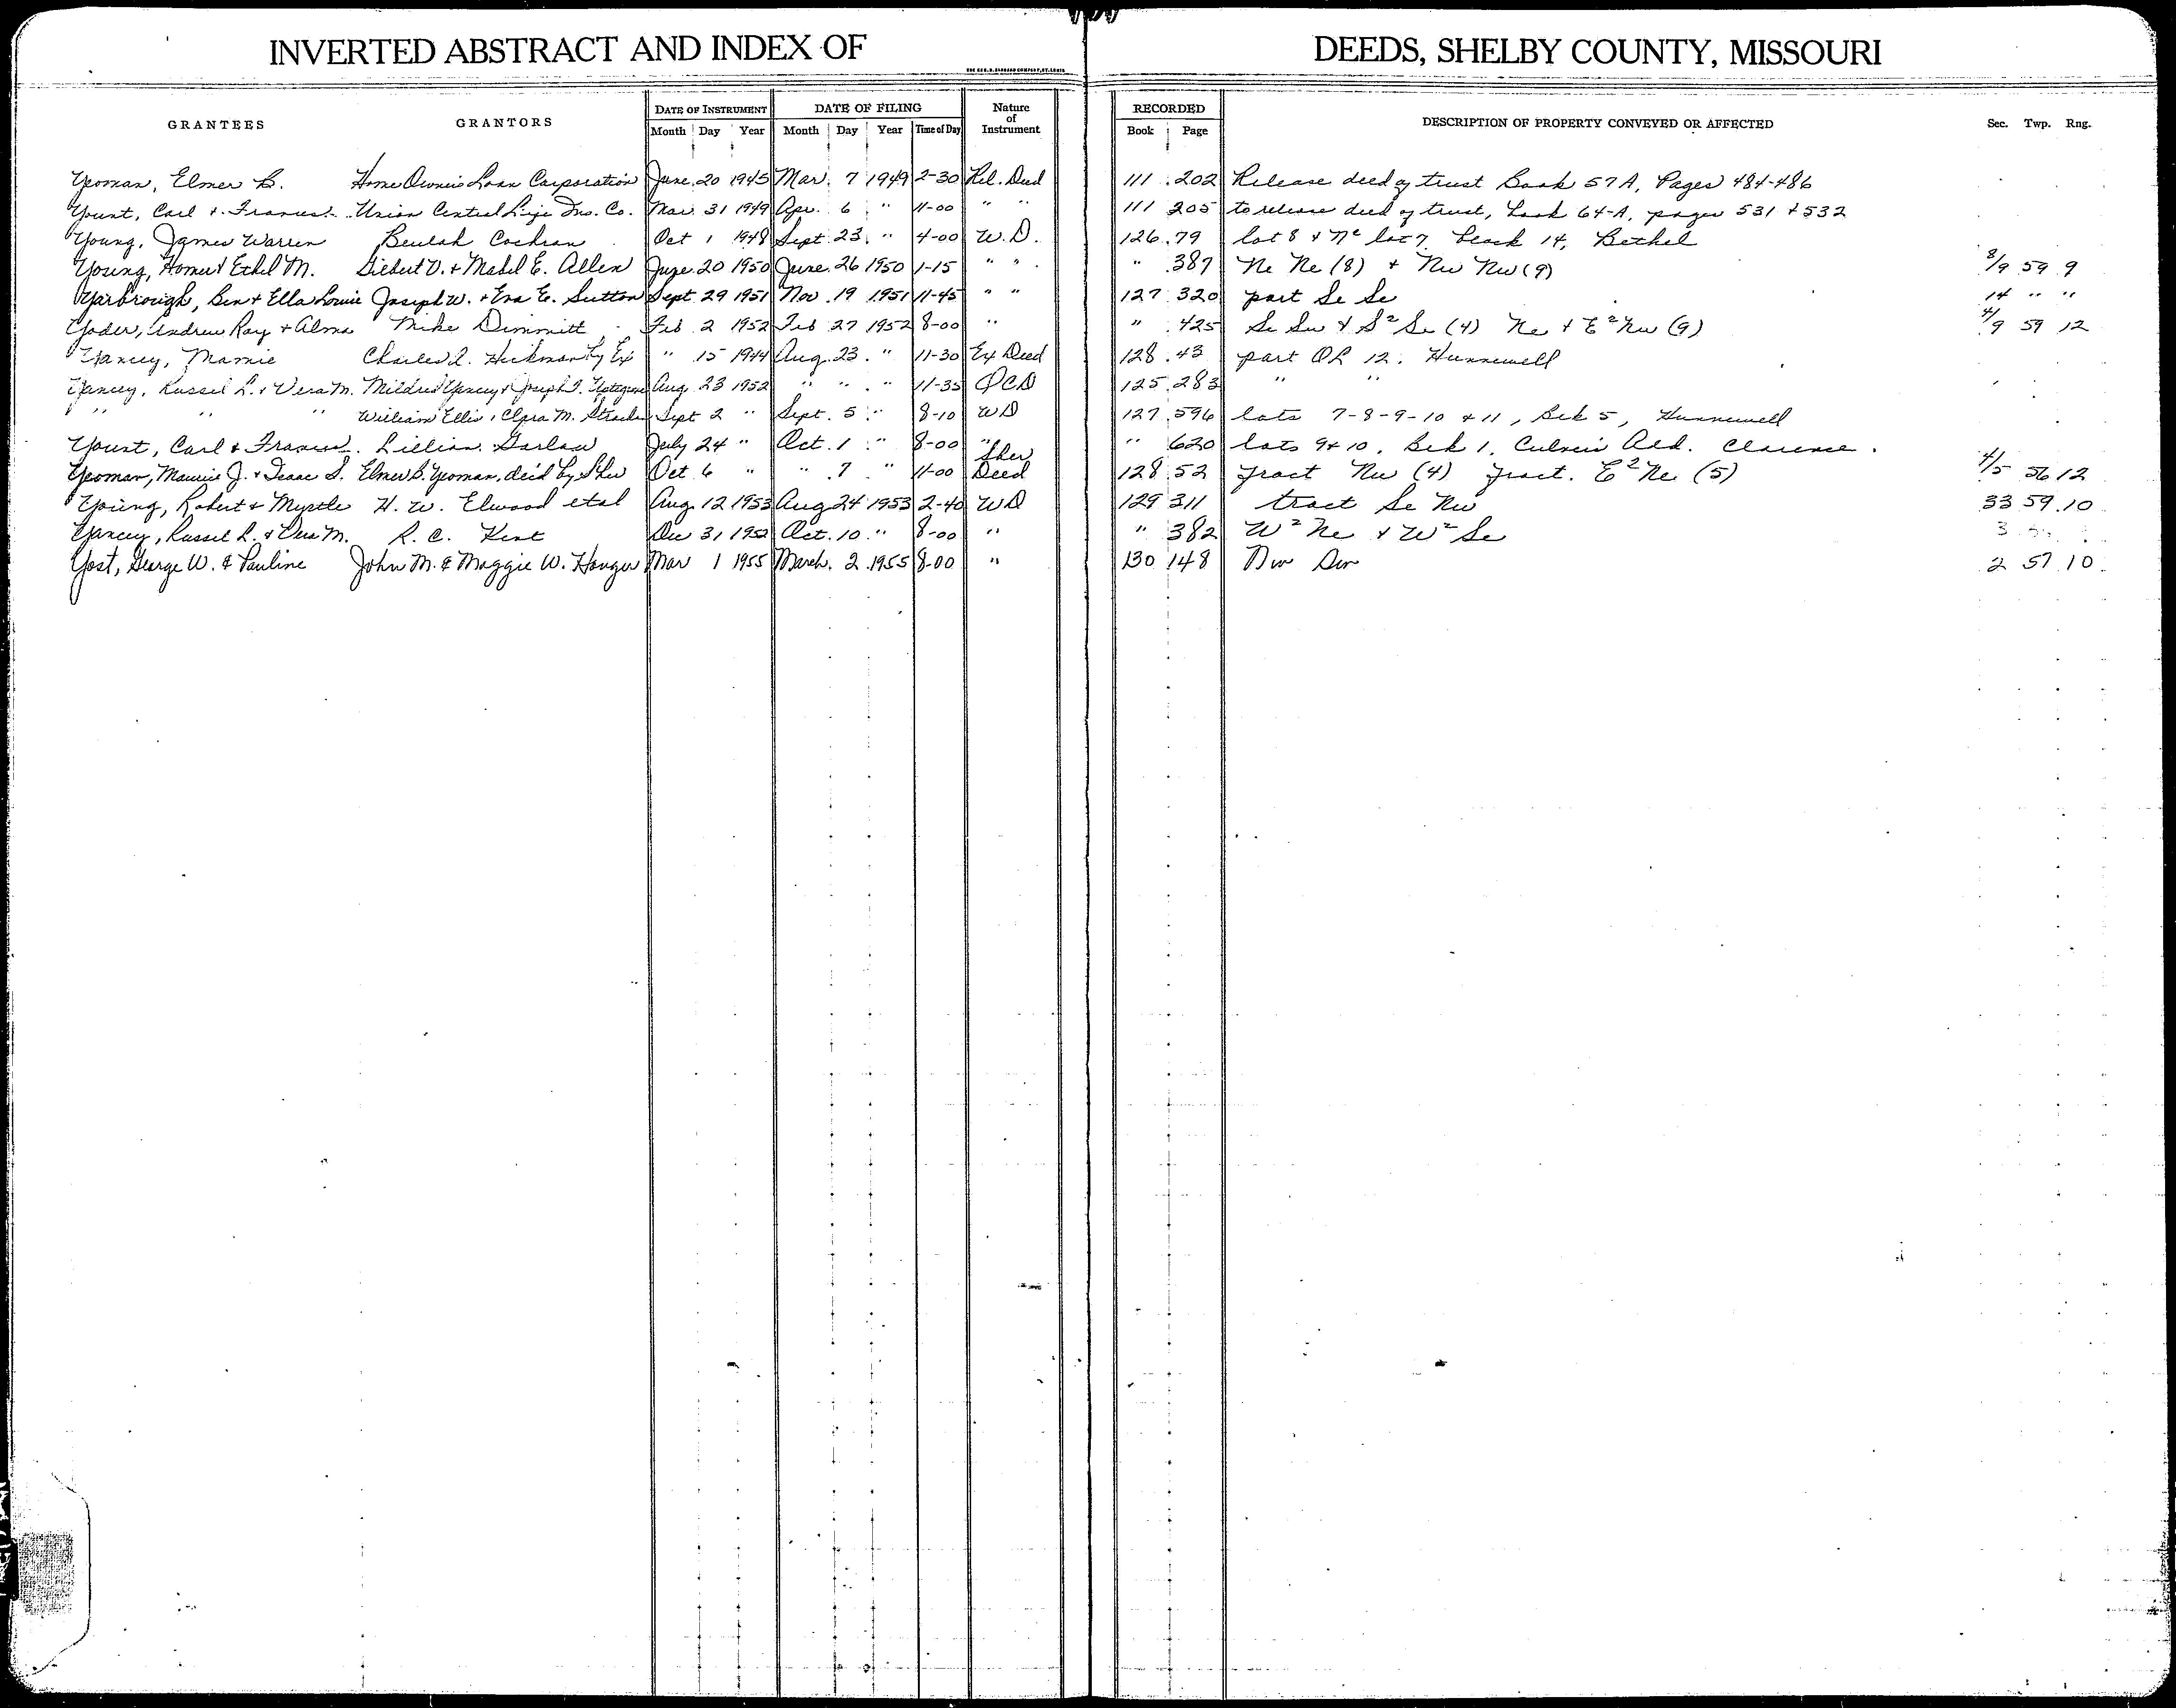 INVERTED ABSTRACT AND INDEX OF DEEDS, SHELBY COUNTY, MISSOURI
GRANTEES GRANTORS DATE OF INSTRUMENT DATE OF FILING Nature of Instrument RECORDED DESCRIPTION OF PROPERTY CONVEYED OR AFFECTED Sec. Twp. Rng.
Month Day Year Month Day Year Time of Day Book Page
Yeoman, Elmer B. Home Owners Loan Corporation June 20 1945 Mar. 7 1949 2-30 Rel. Deed 111 202 Release deed of trust Book 57A, Pages 484-486
Yount, Carl + Frances Union Central Life Ins. Co. Mar. 31 1949 Apr. 6 " 11-00 " " 111 205 to release deed of trust, book 64-A, pages 531 + 532
Young, James Warren Beulah Cochran Oct 1 1948 Sept 23 " 4-00 W.D. 126 79 lot 8 + lot 7 block 14, Bethel
Young, Homer + Ethel M. Gilbert V. + Mabel E. Allen June 20 1950 June 26 1950 1-15 " " " 387 Ne Ne (8) + Nw Nw (9) 8/9 59 9
Yarbrough, Ben + Ella Louise Joseph W. + Eva E. Sutton Sept 29 1951 Nov. 19 1951 11-45 " " 127 320 part Se Se 14 " "
Yoder, Andrew Ray + Alma Mike Dimmitt Feb 2 1952 Feb 27 1952 8-00 " " 425 Se Sw + S² Se (4) Ne + E² Nw (9) 4/9 59 12
Yancey, Mamie Charles A. Hickman by Ex " 15 1944 Aug. 23 " 11-30 Ex Deed 128 43 part OL 12, Hunnewell
Yancey, Russel L. + Vera M. Mildred Yancey + Joseph Aug 23 1952 " " " 11-35 QCD 125 283 " "
" " " William Ellis, Clara M. Sept 2 " Sept. 5 " 8-10 WD 127 596 lots 7-8-9-10 + 11, Blk 5, Hunnewell
Yount, Carl + Frances Lillian Garlaw July 24 " Oct. 1 " 8-00 " " 620 lots 9 + 10, Blk 1, Culver's Add. Clarence.
Yeoman, Maurice J. + Isaac S. Elmer B. Yeoman, dec'd by Sher Oct 6 " " 7 " 11-00 Sher Deed 128 52 fract Nw (4) fract. E² Ne (5) 4/5 56 12
Young, Robert + Myrtle H. W. Elwood etal Aug. 12 1953 Aug 24 1953 2-40 WD 129 311 tract Se Nw 33 59 10
Yancey, Russel L. + Vera M. R. C. Kent Dec 31 1952 Oct. 10 " 8-00 " " 382 W² Ne + W² Se 3
Yost, George W. & Pauline John M. & Maggie W. Hanger Mar 1 1955 March 2 1955 8-00 " 130 148 2 57 10